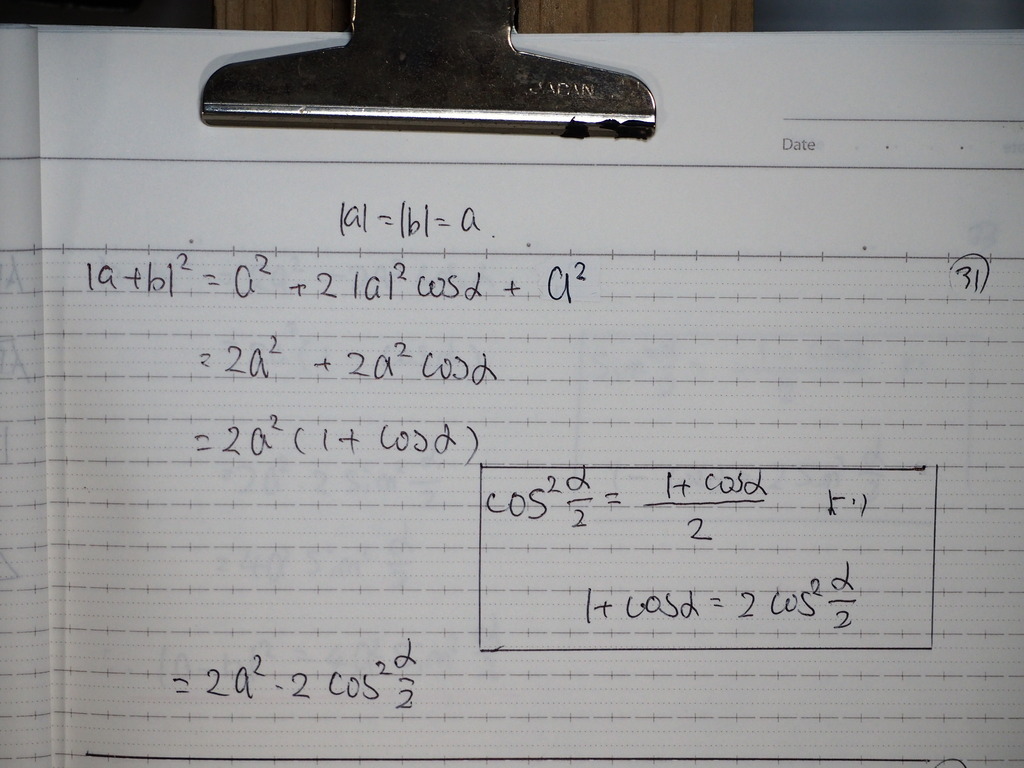 JAPAN
Date
|a| = |b| = a.
|a+b|² = a² + 2|a|² cosα + a² ㉛
= 2a² + 2a² cosα
= 2a² (1 + cosα)
cos² α/2 = (1 + cosα)/2 より
1 + cosα = 2 cos² α/2
= 2a² · 2 cos² α/2